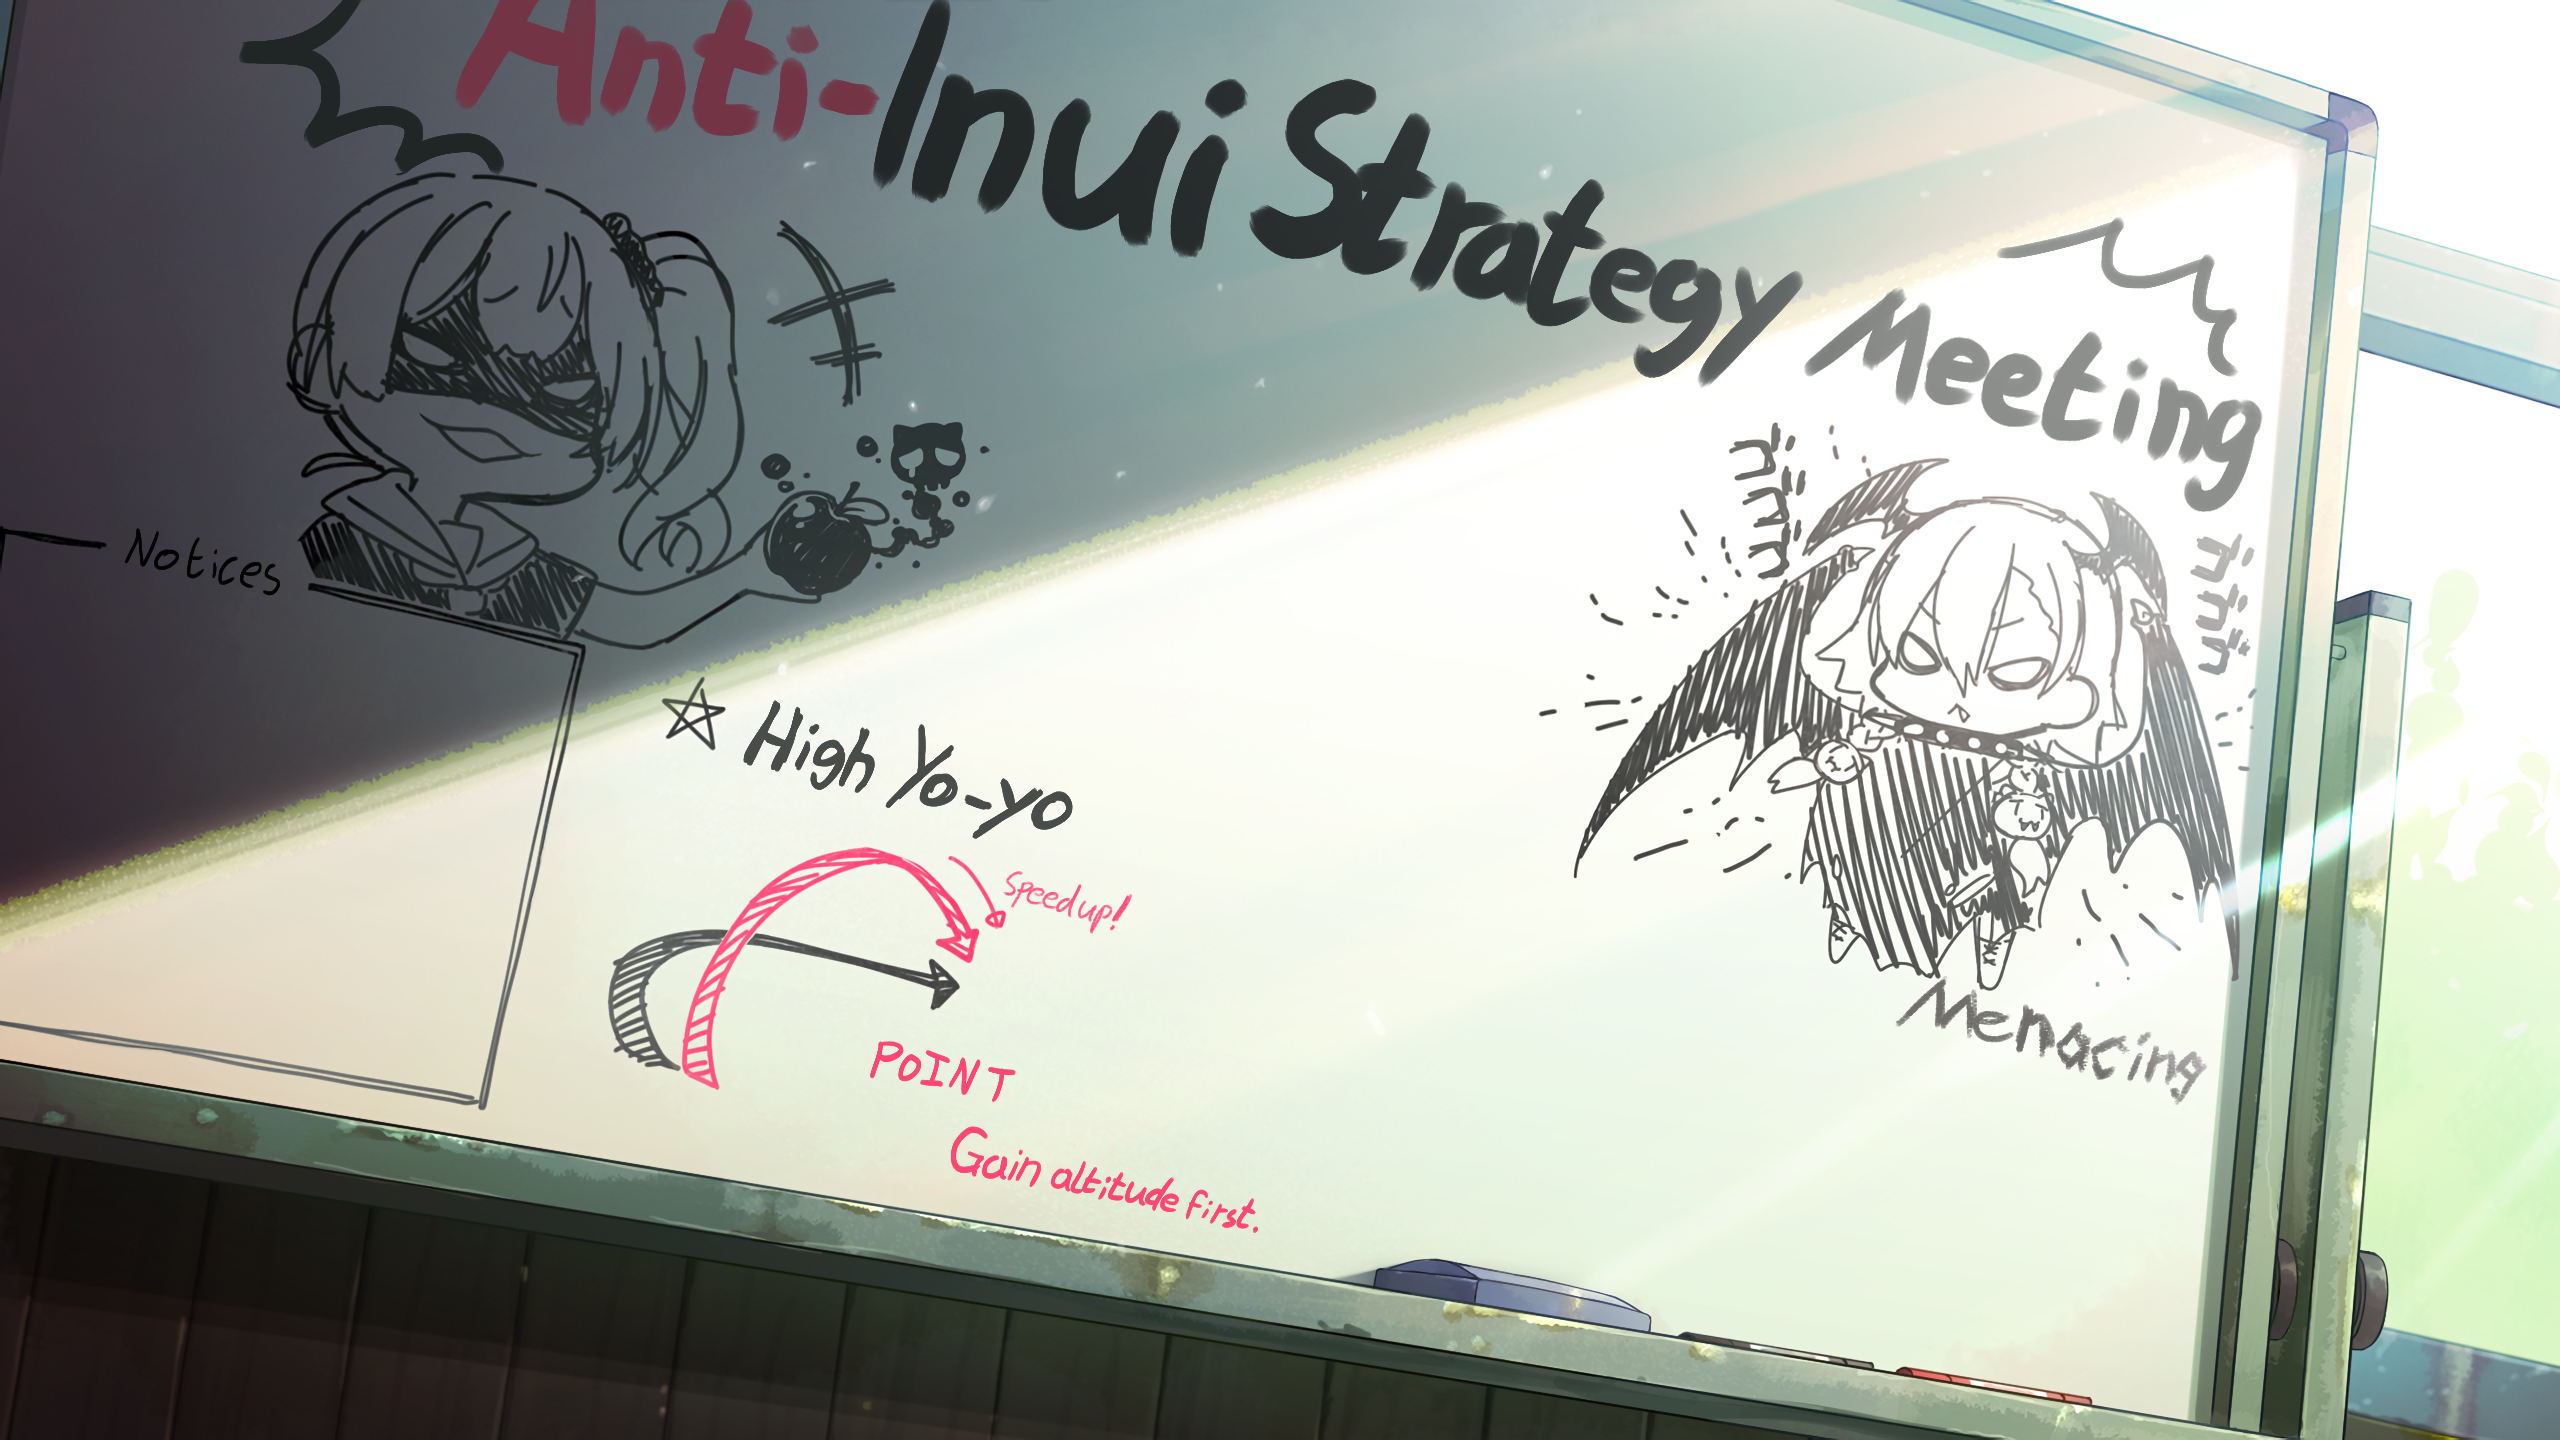 Anti-Inui Strategy Meeting
Notices
☆ High Yo-yo
Speed up!
POINT
Gain altitude first.
Menacing